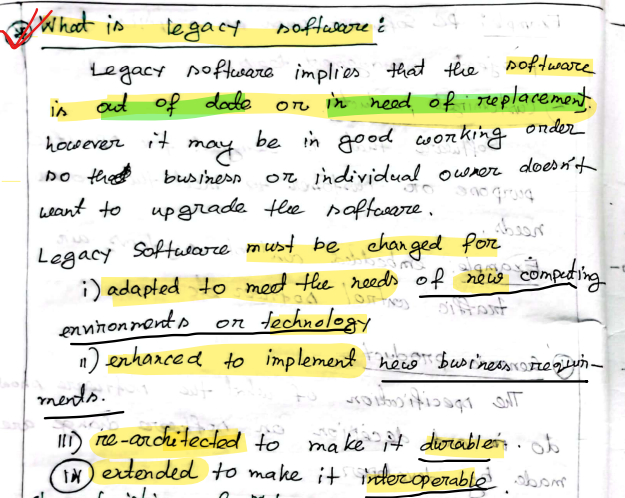 What is legacy software:
Legacy software implies that the software
is out of date or in need of replacement.
however it may be in good working order
so the business or individual owner doesn't
want to upgrade the software.
Legacy Software must be changed for
i) adapted to meet the needs of new computing
environments or technology
ii) enhanced to implement new business requir-
ments.
iii) re-architected to make it durable.
iv) extended to make it interoperable.